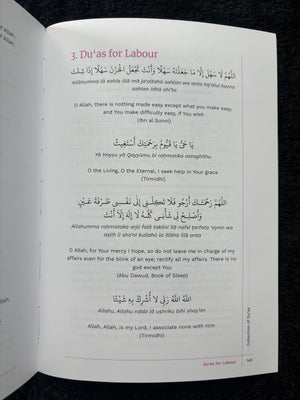 3. Du‘as for Labour
اللَّهُمَّ لَا سَهْلَ إِلَّا مَا جَعَلْتَهُ سَهْلًا وَأَنْتَ تَجْعَلُ الْحَزْنَ سَهْلًا إِذَا شِئْتَ
Allāhumma lā sahla illā mā ja‘altahū sahlan wa anta taj‘alul hazna
sahlan idhā shi’ta
O Allah, there is nothing made easy except what you make easy,
and You make difficulty easy, if You wish
(Ibn al Sunni)
يَا حَيُّ يَا قَيُّومُ بِرَحْمَتِكَ أَسْتَغِيثُ
Yā Ḥayyu yā Qayyūmu bi raḥmatika astaghīthu
O the Living, O the Eternal, I seek help in Your grace
(Tirmidhi)
اللَّهُمَّ رَحْمَتَكَ أَرْجُو فَلَا تَكِلْنِي إِلَى نَفْسِي طَرْفَةَ عَيْنٍ
وَأَصْلِحْ لِي شَأْنِي كُلَّهُ لَا إِلَهَ إِلَّا أَنْتَ
Allahumma raḥmataka arjū falā takilnī ilā nafsī ṭarfata ‘aynin wa
aṣliḥ lī sha’nī kullahū lā ilāha illā anta
O Allah, for Your mercy I hope, so do not leave me in charge of my
affairs even for the blink of an eye; rectify all my affairs. There is no
god except You.
(Abu Dawud, Book of Sleep)
اللَّهُ اللَّهُ رَبِّي لَا أُشْرِكُ بِهِ شَيْئًا
Allahu, Allahu rabbī lā ushriku bihī shay’an
Allah, Allah, is my Lord, I associate none with Him
(Tirmidhi)
Collection of Du‘as
Du‘as for Labour